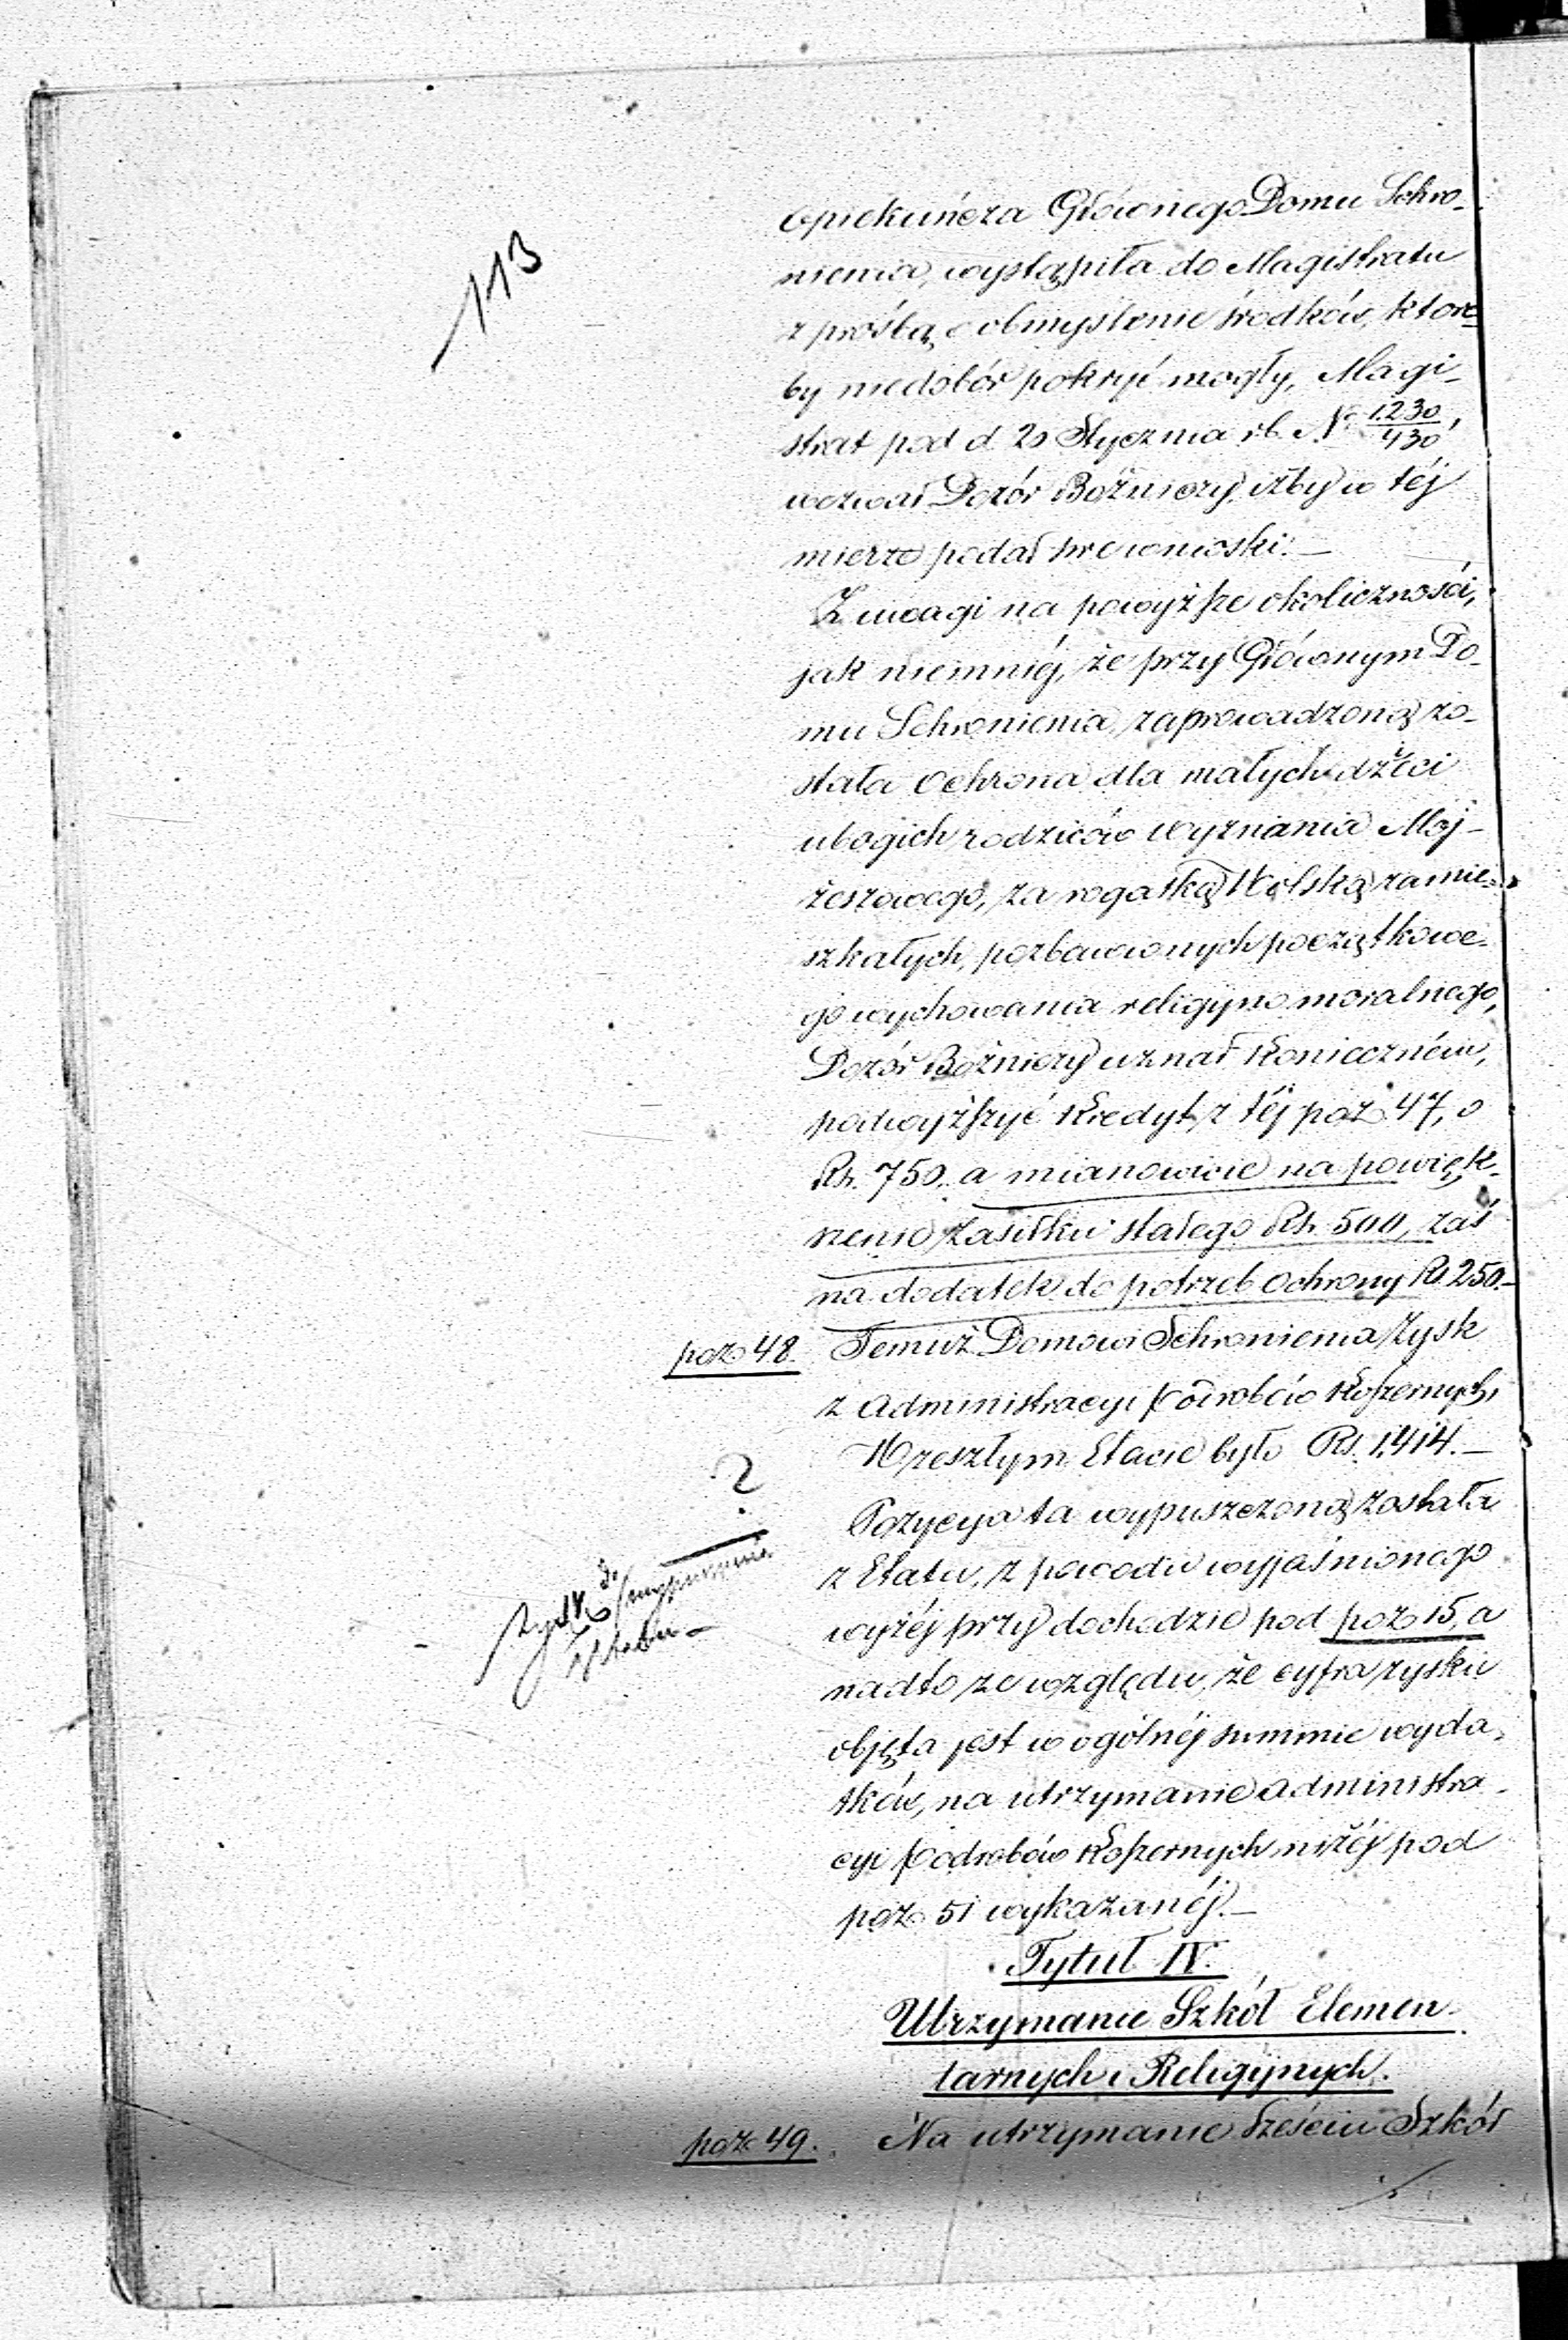 113
opiekuńcza Głównego Domu Schro-
nienia, wystąpiła do Magistratu
z prośbą o obmyślenie środków, które-
by niedobór pokryć mogły, Magi-
strat pod d 20 Stycznia r.b. № 1230/430,
wezwał Dozór Bożniczy, ażby w téj
mierze podał swe wnioski.—
Z uwagi na powyższe okoliczności,
jak niemniéj, że przy Głównym Do-
mu Schronienia, zaprowadzoną zo-
stała Ochrona dla małych dzieci
ubogich rodziców wyznania Moj-
żeszowego, za rogatką Wolską zamie-
szkałych, pozbawionych początkowe-
go wychowania religijno moralnego,
Dozór Bożniczy uznał koniecznem,
podwyższyć kredyt z téj poz 47, o
Rs. 750. a mianowicie na powięk-
szenie zasiłku stałego Rs. 500, zaś
na dodatek do potrzeb Ochrony Rs 250.—
poz 48. Temuż Domowi Schronienia zysk
z Administracyi Podrobów Koszernych,
W zeszłym Etacie było Rs. 1,414.—
?
Pozycya ta wypuszczoną została
z Etatu, z powodu wyjaśnionego
wyżéj przy dochodzie pod poz 15, a
nadto ze względu, że cyfra zysku
objęta jest w ogólnéj summie wyda-
tków, na utrzymanie Administra-
cyi Podrobów Koszernych, niżéj pod
poz 51 wykazanéj.—
Tytuł IV.
Utrzymanie Szkół Elemen-
tarnych i Religijnych.
poz 49. Na utrzymanie Sześciu Szkół